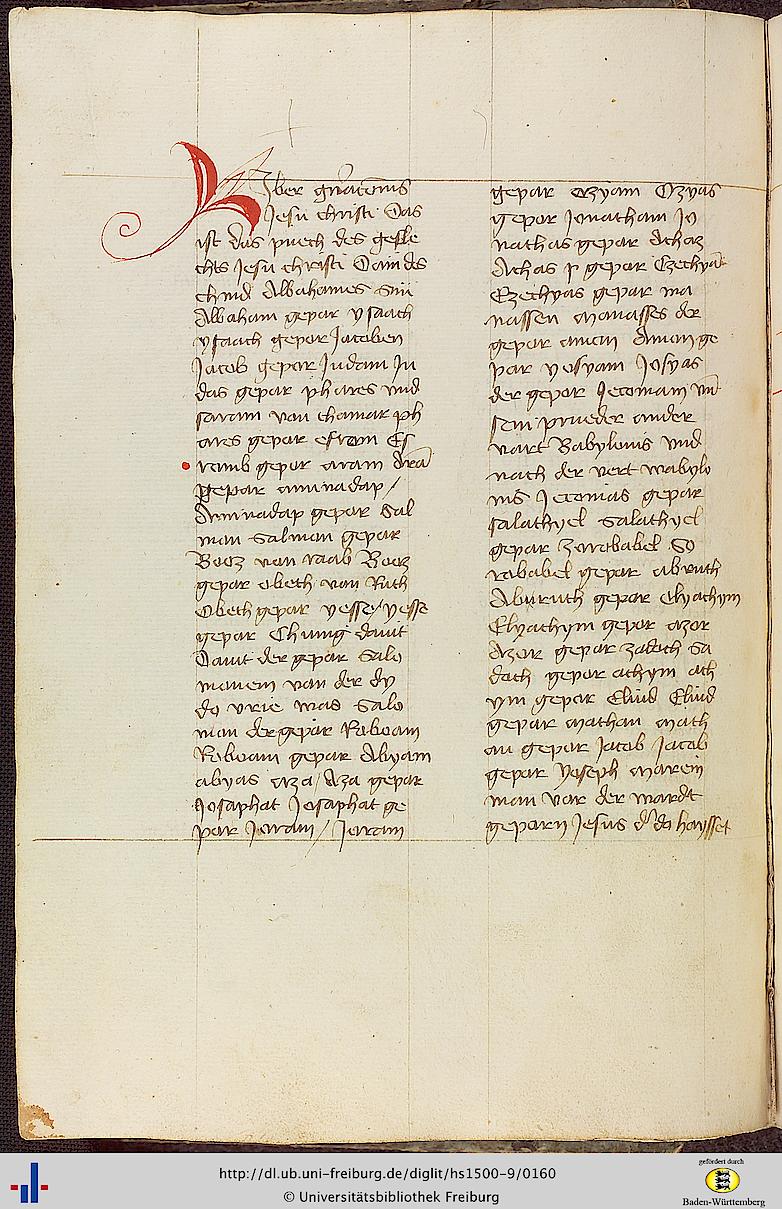 Liber gn̄acōnis
Jesu christi Das
ist das puech des gesle
chts Jesu christi Dauides
chind Abbahames Sun
Abbaham gepar ysaach
ysaach gepar Jacoben
Jacob gepar Judam Ju
das gepar phares vnd
saram van thamar ph
ares gepar esrom Es
romb gepar aram Arā
gepar aminadap /
Aminadap gepar Sal
man Salman gepar
Booz van raab Booz
gepar obeth van Ruth
Obeth gepar yesse / yesse
gepar Chunig dauit
Dauit der gepar Salo
monem van der dy
do vrie was Salo
mon der gepar Roboam
Roboam gepar Abyam
abyas aza / Aza gepar
Josaphat Josaphat ge
par Joram / Joram
gepar ozyam Ozyas
gepar Jonatham Jo
nathas gepar Achaz
Achas p gepar Ezechyā
Ezechyas gepar ma
nassen manasses der
gepar amon Amon ge
par yosyam Josyas
der gepar Jeconiam vn̄
sein prueder an der
vart Babylonis vnd
nach der vert wabylo
nis Jeconias gepar
salathyel Salathyel
gepar zorobabel So
robabel gepar abyuth
Abyuth gepar elyachym
Elyachym gepar azor
Azor gepar zadoch Sa
doch gepar achym ach
ym gepar Eliud Eliud
gepar mathan Math
an gepar Jacob Jacob
gepar Yoseph marein
man van der wardt
geparn Jesus d' do haysset
http://dl.ub.uni-freiburg.de/diglit/hs1500-9/0160
© Universitätsbibliothek Freiburg
gefördert durch
Baden-Württemberg